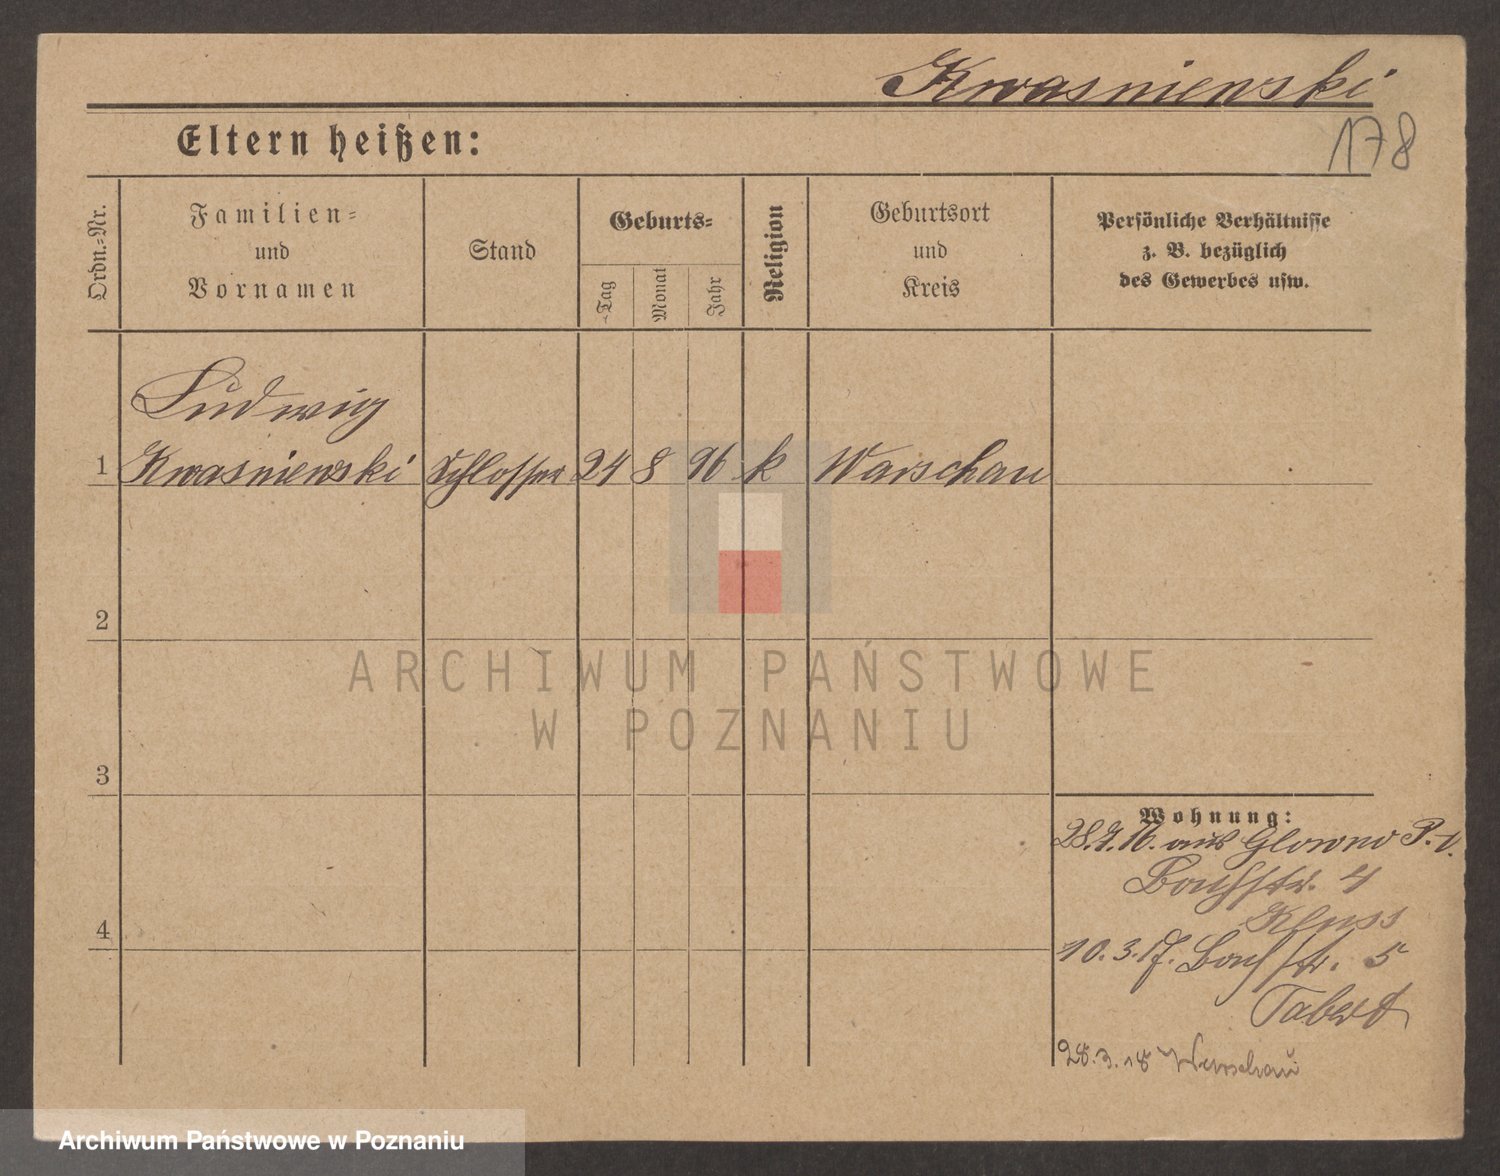 Kwasniewski
178
Eltern heißen:
Ordn.-Nr.
Familien-
und
Vornamen
Stand
Geburts-
Tag
Monat
Jahr
Religion
Geburtsort
und
Kreis
Persönliche Verhältnisse
z. B. bezüglich
des Gewerbes usw.
Ludwig
1 Kwasniewski Schlosser 24 8 96 k Warschau
2
ARCHIWUM PAŃSTWOWE
W POZNANIU
3
Wohnung:
aus Glowno P.
Bachstr. 4
4
10.3.17. Bachstr. 5
Tabert
28.3.18 Warschau
Archiwum Państwowe w Poznaniu